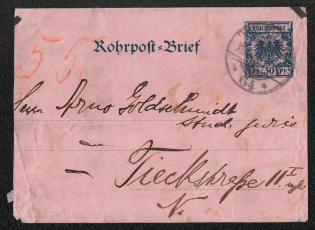 Rohrpost-Brief
REICHSPOST
30 PF
55.
Herrn Arno Goldschmidt
stud. juris
Tieckstraße 11 I
N.